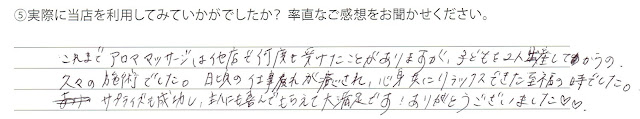 ⑤実際に当店を利用してみていかがでしたか？ 率直なご感想をお聞かせください。
これまでアロママッサージは他店で何度も受けたことがありますが、子どもを2人出産してからの、
久々の施術でした。日頃の仕事疲れが癒され、心身共にリラックスできた至福の時でした。
サプライズも成功し、主人にも喜んでもらえて大満足です！ありがとうございました♡♡.